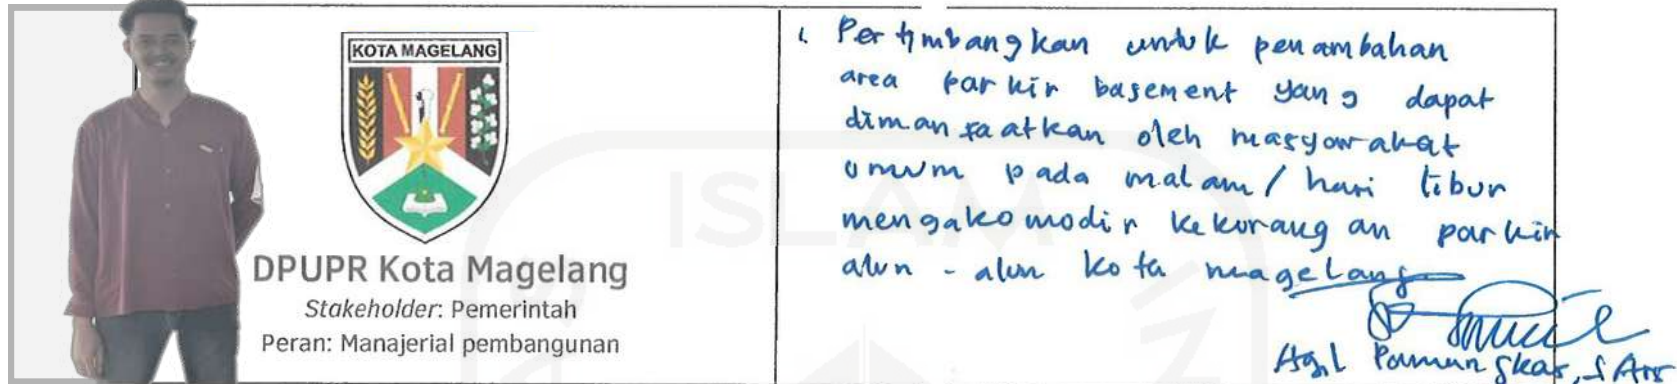 KOTA MAGELANG
DPUPR Kota Magelang
Stakeholder: Pemerintah
Peran: Manajerial pembangunan
1. Pertimbangkan untuk penambahan
area parkir basement yang dapat
dimanfaatkan oleh masyarakat
umum pada malam / hari libur
mengakomodir kekurangan parkir
alun - alun kota magelang
Pamungkas, S Ars
ISLAM